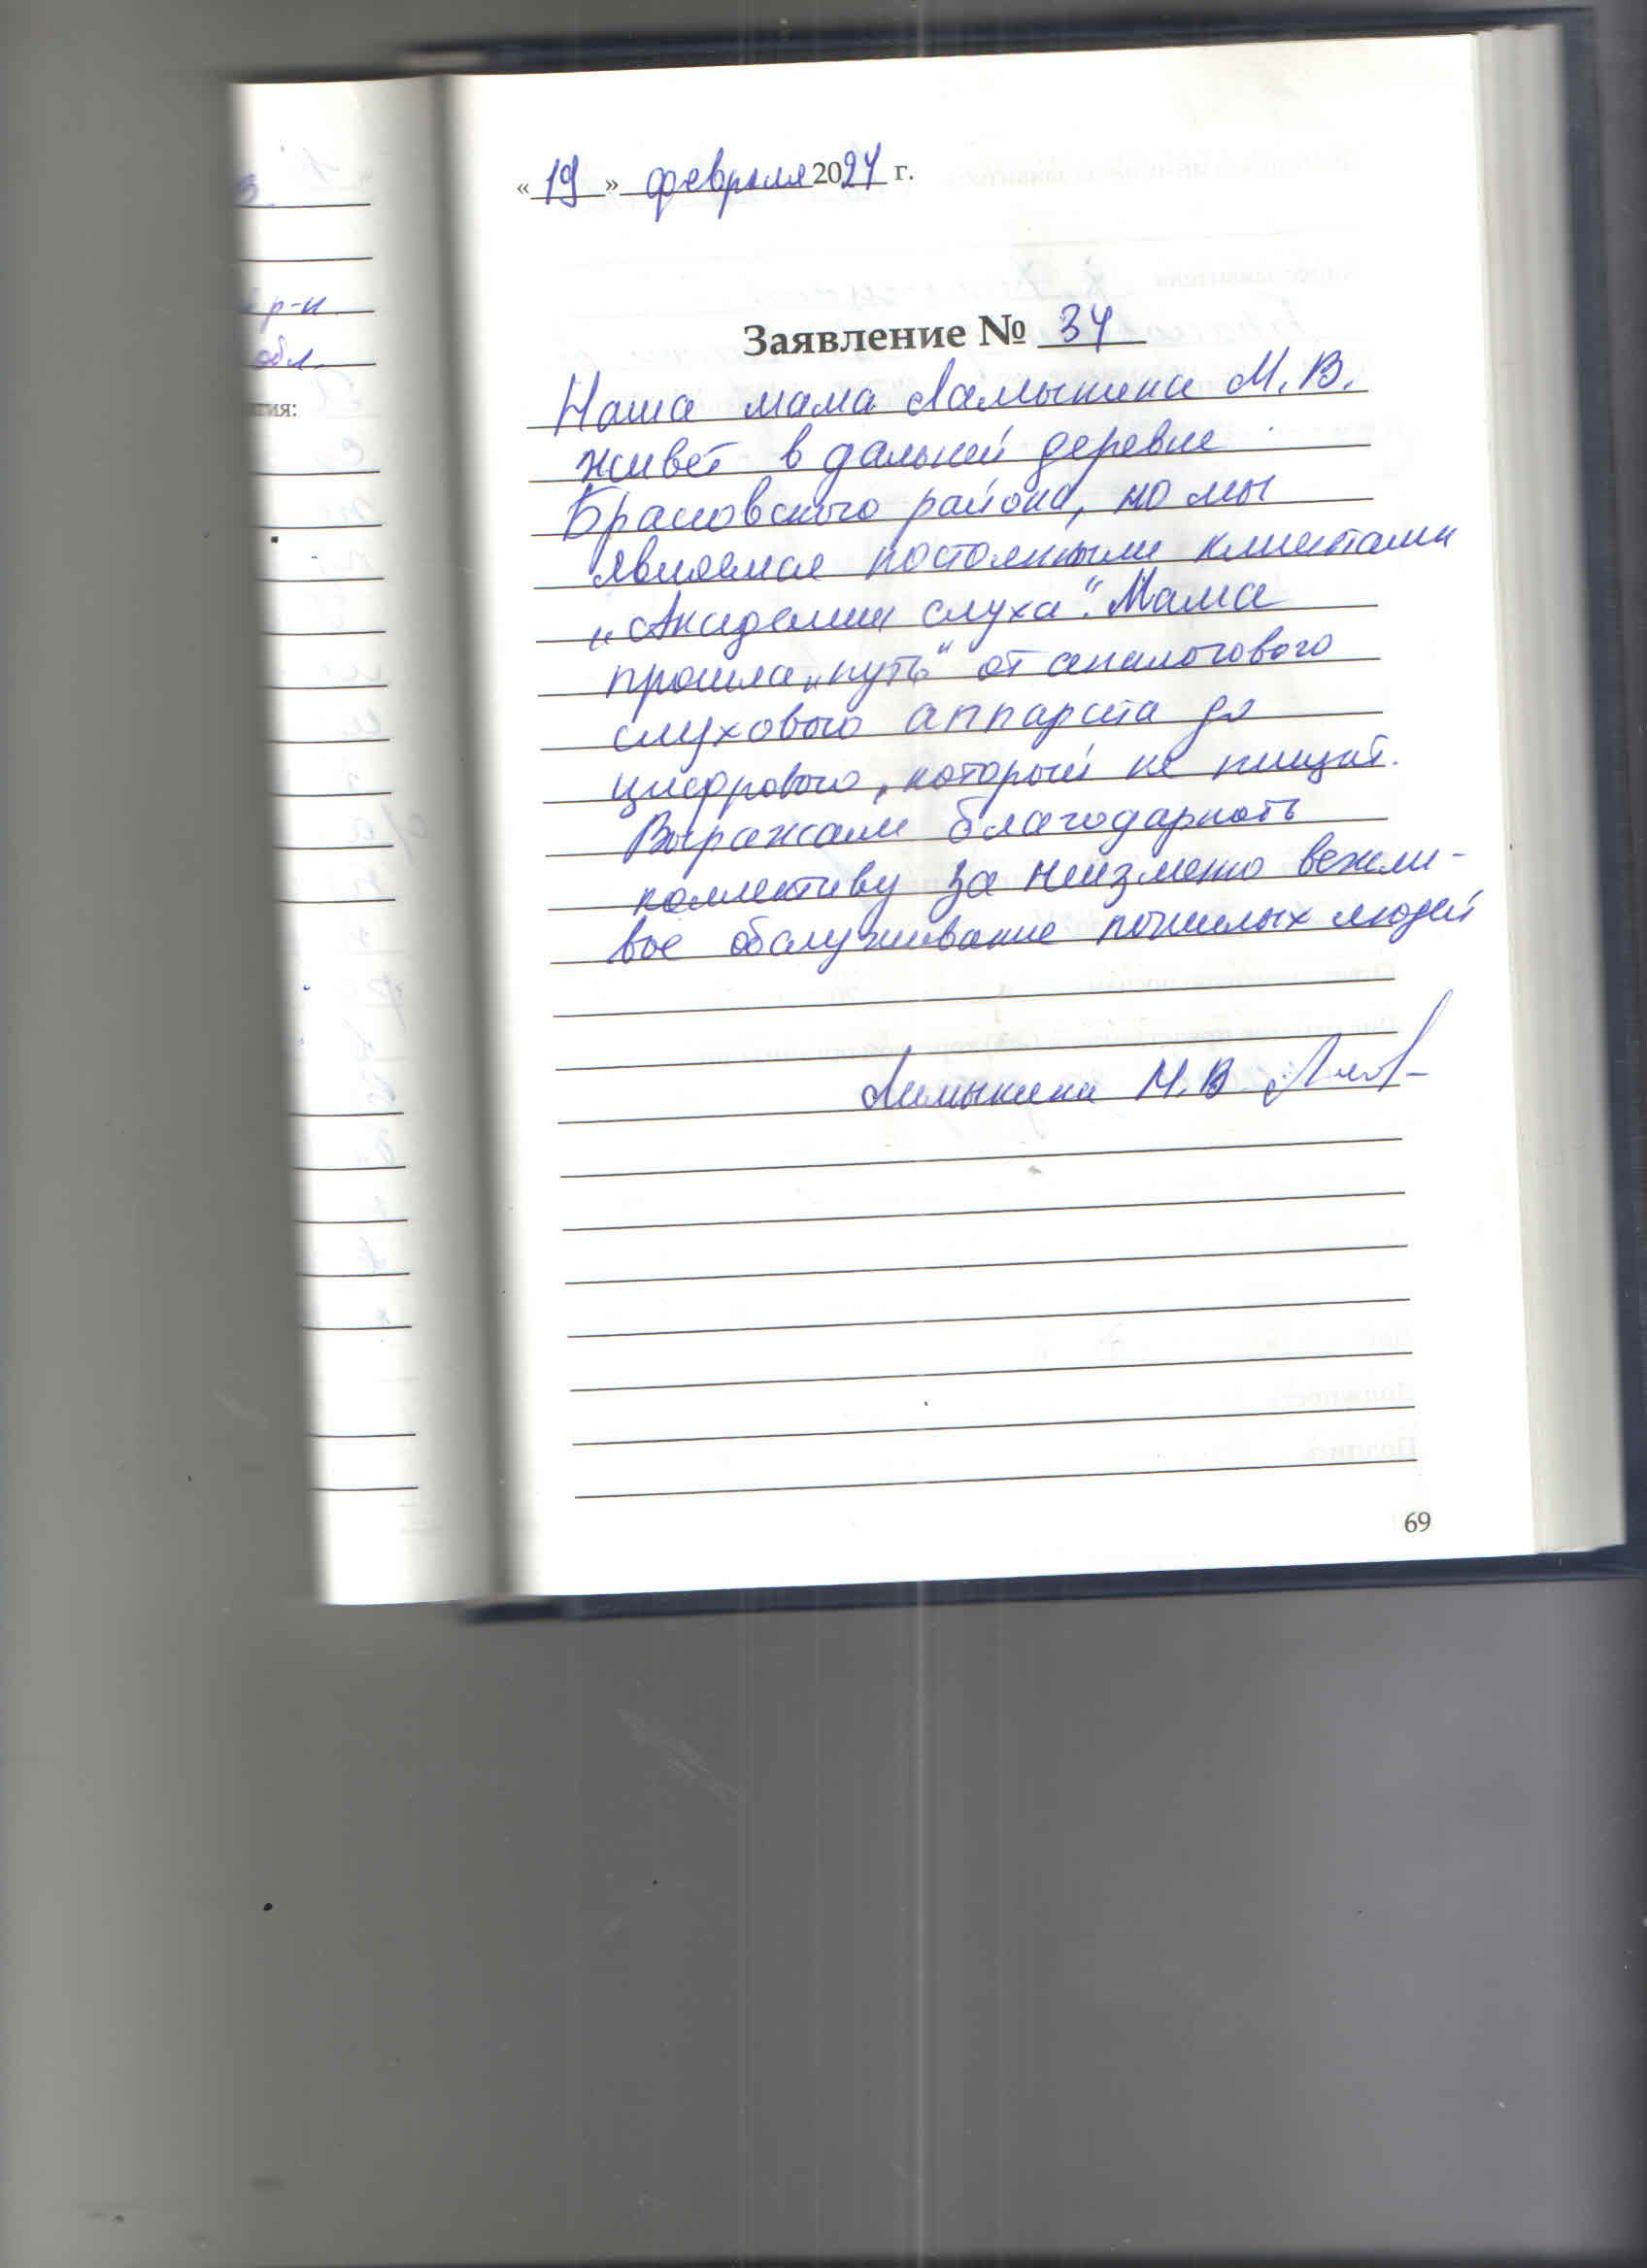 р-н
обл.
« 19 » февраля 2024 г.
Заявление № 34
Наша мама Лямыкина М.В.
живёт в дальней деревне
Брасовского района, но мы
являемся постоянными клиентами
„Академии слуха“. Мама
прошла „путь“ от аналогового
слухового аппарата до
цифрового, который не пищит.
Выражаем благодарность
коллективу за неизменно вежли-
вое обслуживание пожилых людей
М.В
69